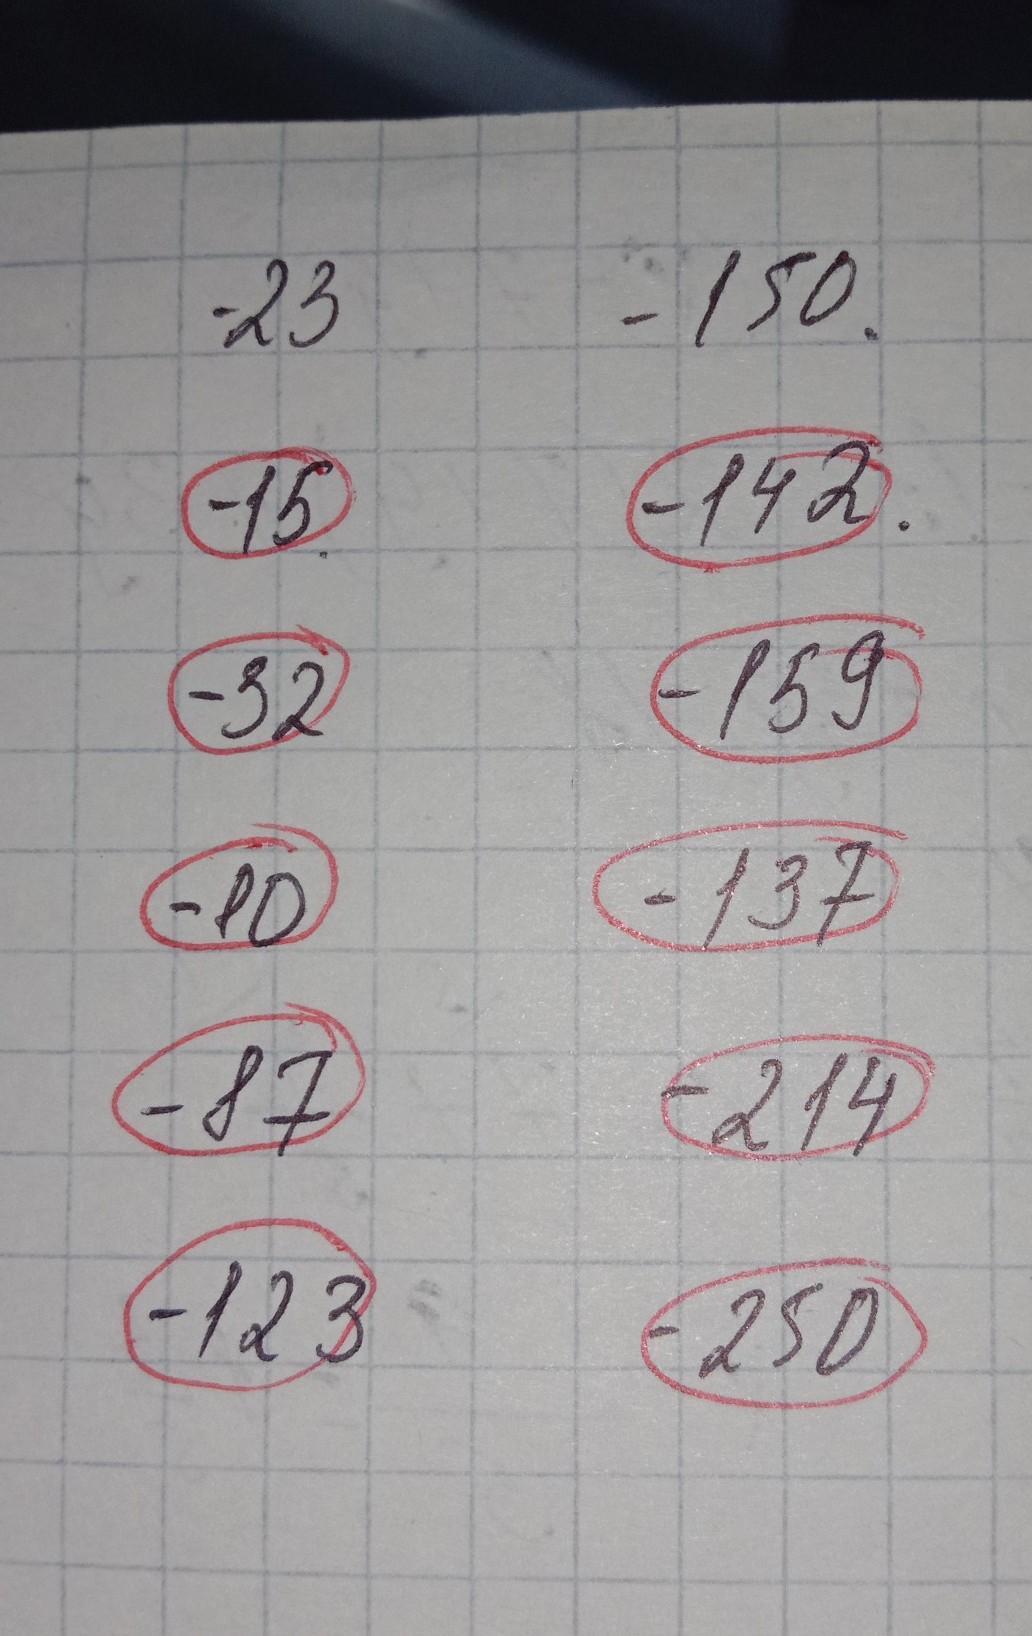 -23 -150.
-15. -142.
-32 -159
-10 -137
-87 -214
-123 -250